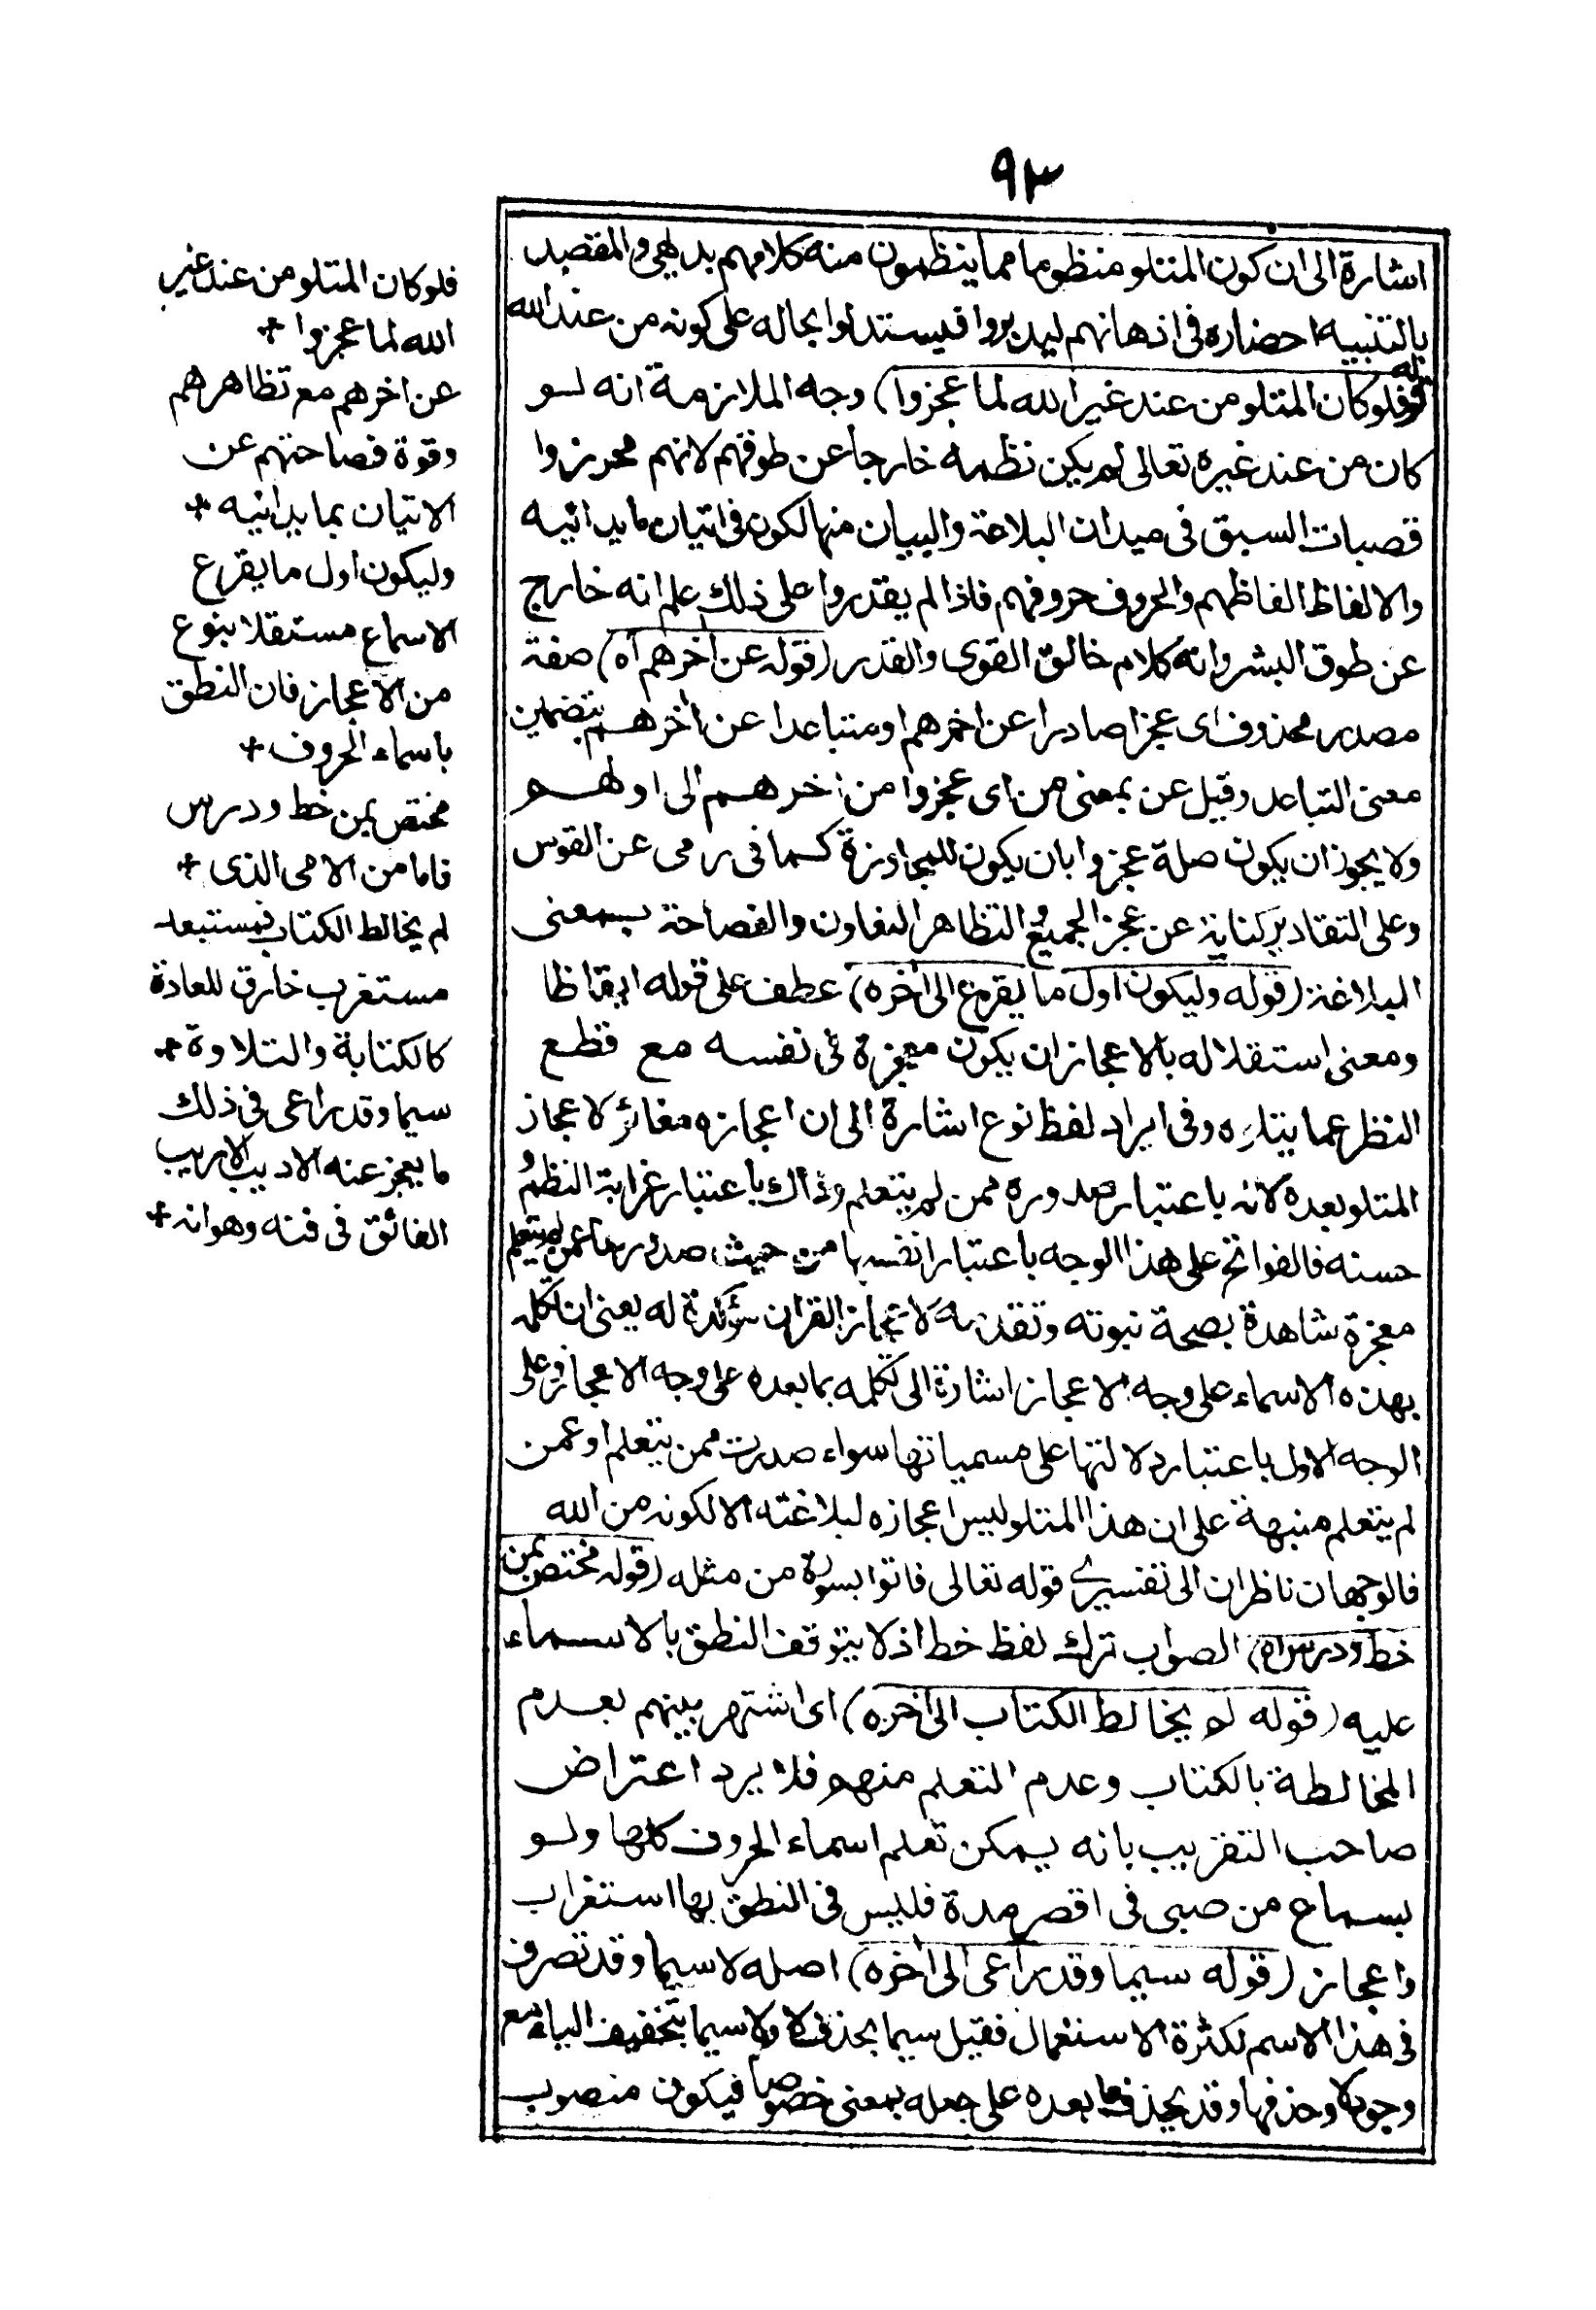 ٩٣
اشارة الى ان كون المتلو منظوما مما ينظمون منه كلامهم بديهى والمقصد
بالتنبيه احضاره فى اذهانهم ليدبروا فيستدلوا بحاله على كونه من عند الله
قوله فلو كان المتلو من عند غير الله لما عجزوا) وجه الملازمة انه لو
كان من عند غيره تعالى لم يكن نظمه خارجا عن طوقهم لانهم محرزوا
قصبات السبق فى ميدان البلاغة والبيان منها لكون فى اتيان ما يدانيه
والالفاظ الفاظهم والحروف حروفهم فاذا لم يقدروا على ذلك علم انه خارج
عن طوق البشر وانه كلام خالق القوى والقدر (قوله عن اخرهم اه) صفة
مصدر محذوف اى عجزا صادرا عن اخرهم او متباعدا عن اخرهم بتضمين
معنى التباعد وقيل عن بمعنى من اى عجزوا من اخرهم الى اولهم
ولا يجوز ان يكون صلة عجزوا بان يكون للمجاوزة كما فى رمى عن القوس
وعلى التقادير كناية عن عجز الجميع و التظاهر التعاون والفصاحة بمعنى
البلاغة (قوله وليكون اول ما يقرع الى اخره) عطف على قوله ايقاظا
ومعنى استقلاله بالاعجاز ان يكون معجزة فى نفسه مع قطع
النظر عما يتلوه وفى ايراد لفظ نوع اشارة الى ان اعجازه مغائر لاعجاز
المتلو بعده لانه باعتبار صدوره ممن لم يتعلم وذاك باعتبار غرابة النظم و
حسنه فالفواتح على هذا الوجه باعتبار انفسها من حيث صدورها عمن لم يتعلم
معجزة شاهدة بصحة نبوته وتقدمة لاعجاز القران مؤكدة له يعنى ان تكلمه
بهذه الاسماء على وجه الاعجاز اشارة الى تكلمه بما بعده على وجه الاعجاز وعلى
الوجه الاول باعتبار دلالتها على مسمياتها سواء صدرت ممن يتعلم او عمن
لم يتعلم منبهة على ان هذا المتلو ليس اعجازه لبلاغته الا لكونه من الله
فالوجهان ناظران الى تفسيرى قوله تعالى فاتوا بسورة من مثله (قوله مختص بمن
خط ودرس اه) الصواب ترك لفظ خط اذ لا يتوقف النطق بالاسماء
عليه (قوله لم يخالط الكتاب الى اخره) اى اشتهر بينهم بعدم
المخالطة بالكتاب وعدم التعلم منهم فلا يرد اعتراض
صاحب التقريب بانه يمكن تعلم اسماء الحروف كلها ولو
بسماع من صبى فى اقصر مدة فليس فى النطق بها استغراب
واعجاز (قوله سيما وقد راعى الى اخره) اصله لاسيما وقد تصرف
فى هذا الاسم لكثرة الاستعمال فقيل سيما بحذف لا ولاسيما بتخفيف الياء مع
وجود لا وحذفها وقد يحذف ما بعده على جعله بمعنى خصوصا فيكون منصوب
فلو كان المتلو من عند غير
الله لما عجزوا +
عن اخرهم مع تظاهرهم
وقوة فصاحتهم عن
الاتيان بما يدانيه +
وليكون اول ما يقرع
الاسماع مستقلا بنوع
من الاعجاز فان النطق
باسماء الحروف +
مختص بمن خط ودرس
فاما من الامى الذى +
لم يخالط الكتاب فمستبعد
مستغرب خارق للعادة
كالكتابة والتلاوة +
سيما وقد راعى فى ذلك
ما يعجز عنه الاديب الاريب
الفائق فى فنه وهو انه +